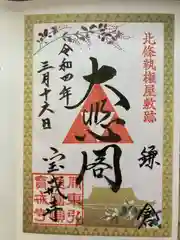 北條執権屋敷跡
鎌倉
大悲閣
令和四年
三月十六日
宝戒寺